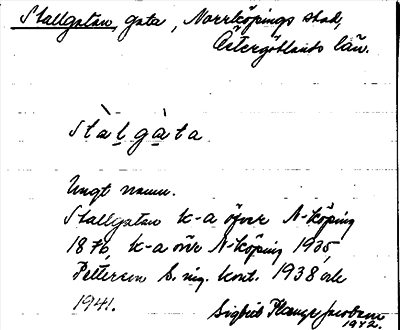 Stallgatan, gata, Norrköpings stad,
Östergötlands län.
stàl̲gàta
Ungt namn.
Stallgatan k-a öfver N-köping
1876, k-a över N-köping 1935,
Petterson S. nig. kont. 1938 och
1941.
Sigbrit Plænge Jacobson
1972.